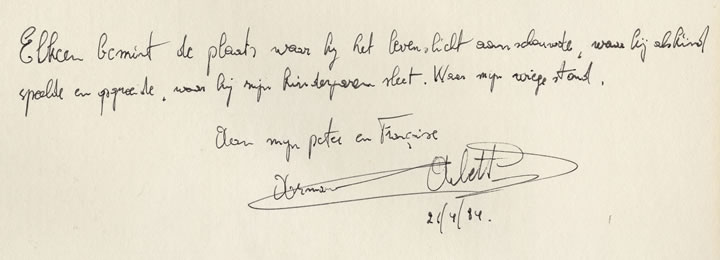 Elkeen bemint de plaats waar hij het levenslicht aanschouwde, waar hij als kind
speelde en opgroeide, waar hij mijn kinderjaren sleet. Waar mijn wiege stond.
Aan mijn peter en Françoise
Herman
21/4/84.